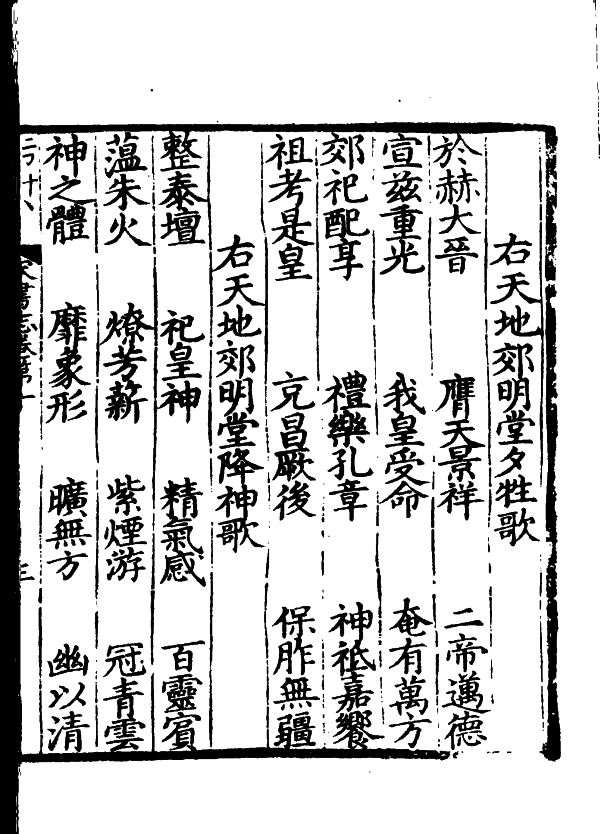 右天地郊明堂夕牲歌
於赫大晉 膺天景祥 二帝邁德
宣茲重光 我皇受命 奄有萬方
郊祀配享 禮樂孔章 神祇嘉饗
祖考是皇 克昌厥後 保胙無疆
右天地郊明堂降神歌
整泰壇 祀皇神 精氣感 百靈賓
蘊朱火 燎芳薪 紫煙游 冠青雲
神之體 靡象形 曠無方 幽以清